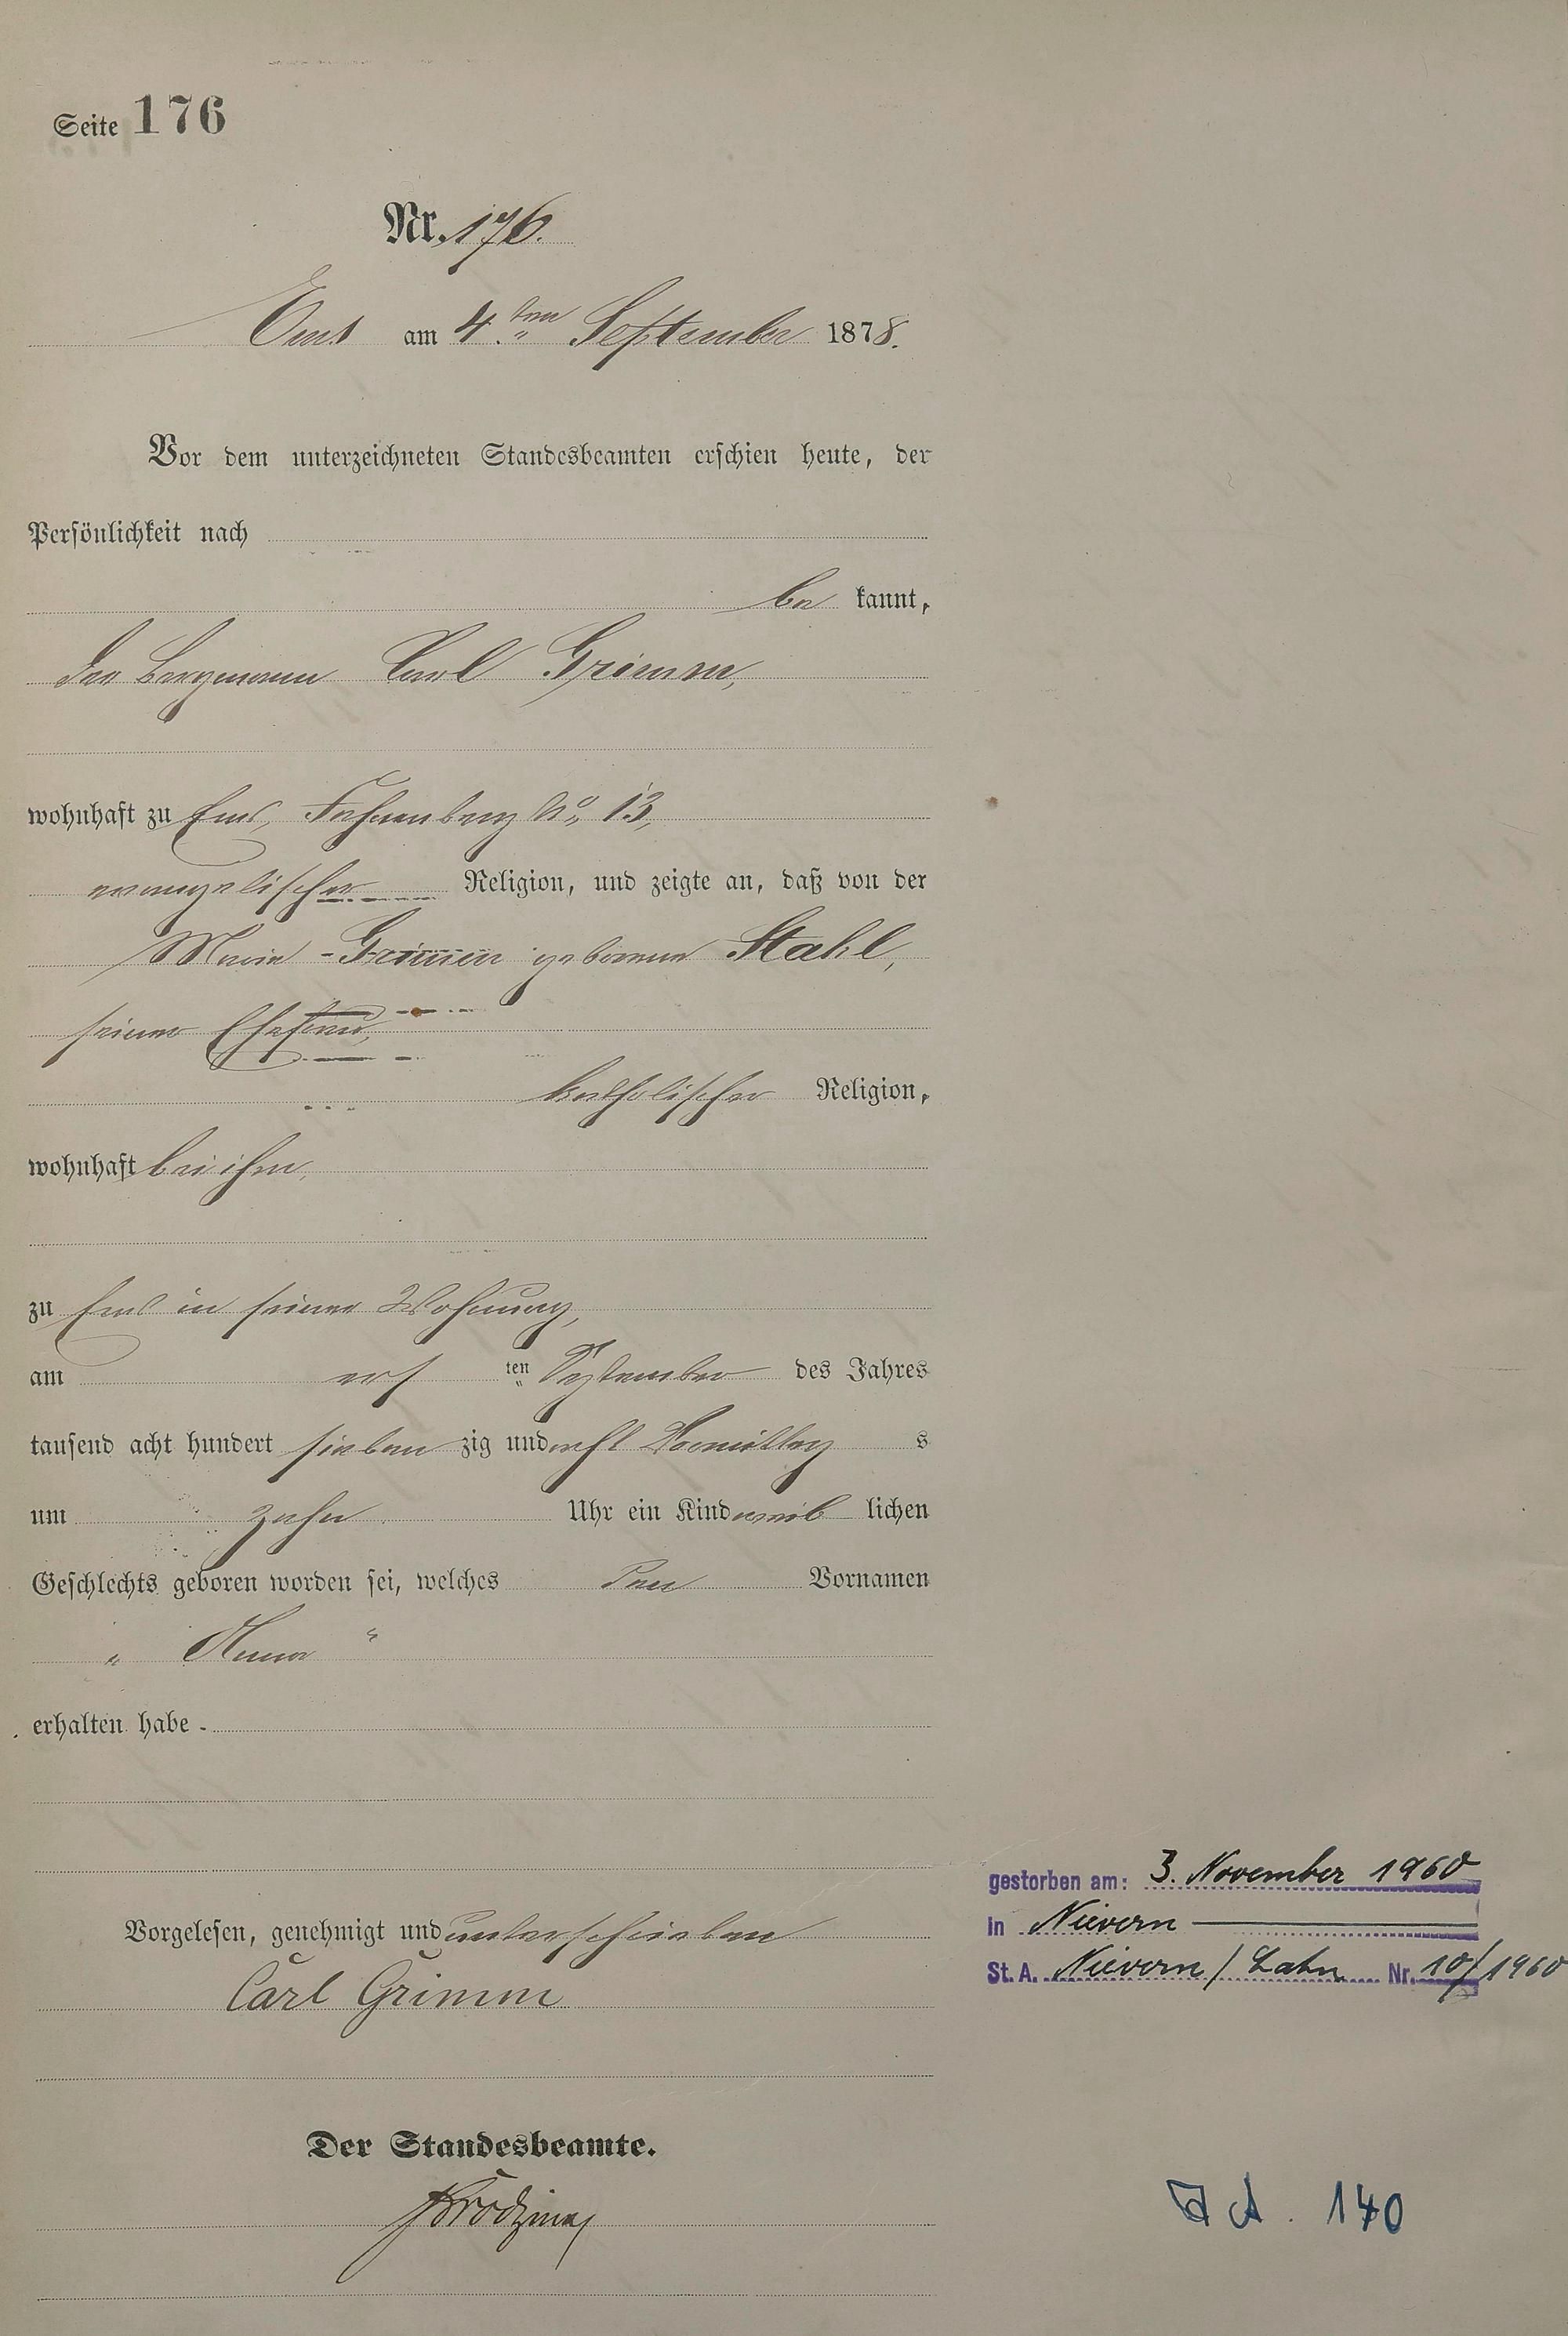 Seite 176
Nr. 176.
Ems am 4.ten September 1878.
Vor dem unterzeichneten Standesbeamten erschien heute, der
Persönlichkeit nach
be kannt,
der Bergmann Carl Grimm,
wohnhaft zu Ems, Fahnenberg No. 13,
evangelischer Religion, und zeigte an, daß von der
Marie Grimm geborene Stahl,
seiner Ehefrau,
katholischer Religion,
wohnhaft bei ihm,
zu Ems in seiner Wohnung,
am ersten September des Jahres
tausend acht hundert sieben zig und acht Vormittag s
um zehn Uhr ein Kind weib lichen
Geschlechts geboren worden sei, welches den Vornamen
„ Anna "
erhalten habe.
Vorgelesen, genehmigt und unterschrieben
Carl Grimm
Der Standesbeamte.
gestorben am: 3. November 1960
in Nievern
St. A. Nievern / Lahn Nr. 10/1960
140